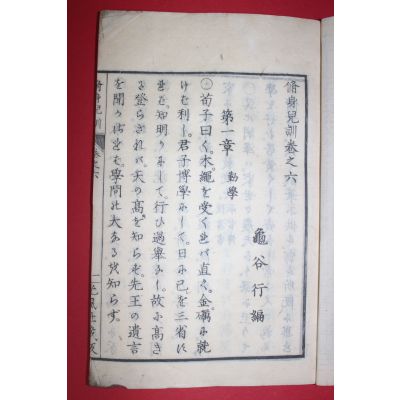 脩身兒訓卷之六
龜谷行編
第一章 勸學
荀子曰く。木繩を受くれバ直く。金礪に就
けバ利し。君子博學にして。日に己を三省
を知明かにして。行ひ過擧なし。故に高き
に登らざれバ。天の高きを知らず。先王の遺言
を聞かざれバ。學問の大なるを知らず。
脩身兒訓 卷之六